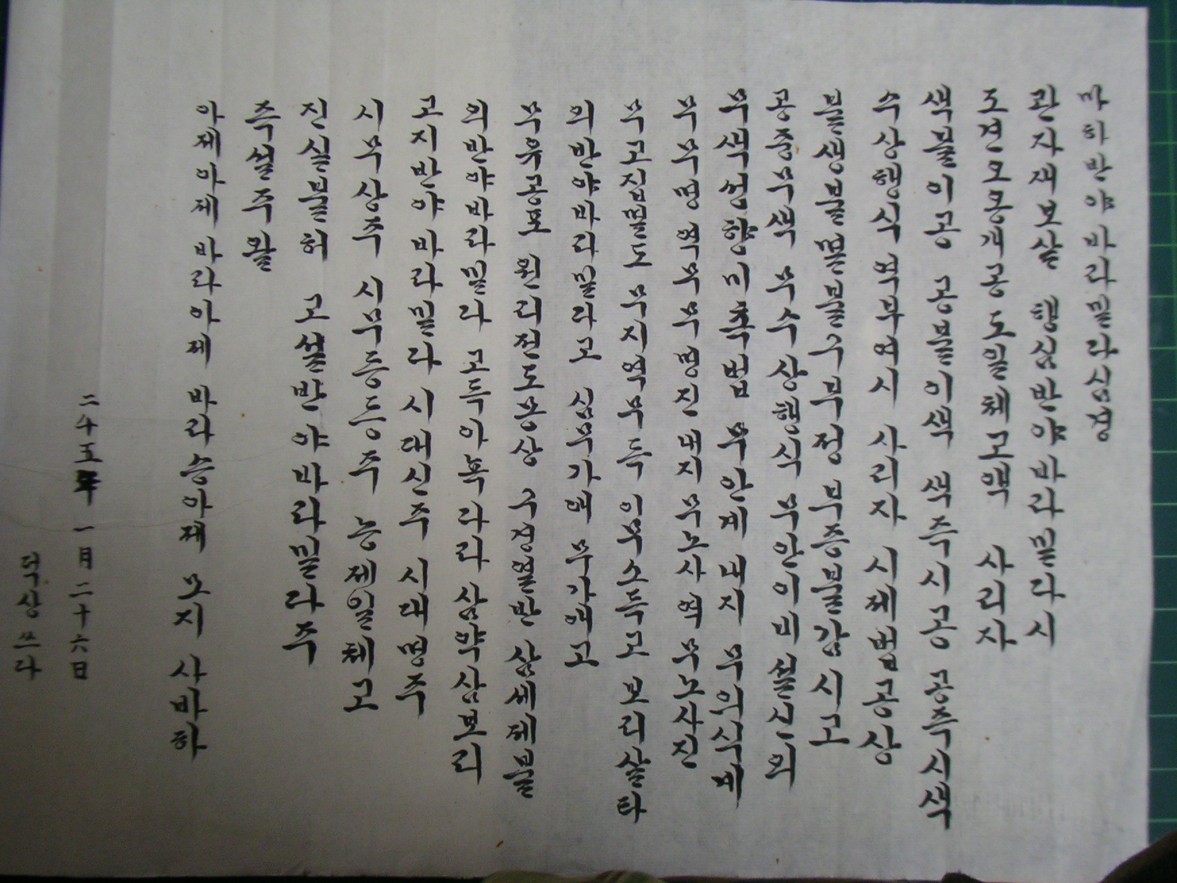 마하반야바라밀다심경
관자재보살 행심반야바라밀다시
조견오온개공도일체고액 사리자
색불이공 공불이색 색즉시공 공즉시색
수상행식 역부여시 사리자 시제법공상
불생불멸불구부정 부증불감 시고
공중무색 무수상행식 무안이비설신의
무색성향미촉법 무안계 내지 무의식계
무무명 역무무명진 내지 무노사 역무노사진
무고집멸도 무지역무득 이무소득고 보리살타
의반야바라밀다고 심무가애 무가애고
무유공포 원리전도몽상 구경열반 삼세제불
의반야바라밀다 고득아뇩다라삼먁삼보리
고지반야바라밀다 시대신주 시대명주
시무상주 시무등등주 능제일체고
진실불허 고설반야바라밀다주
즉설주왈
아제아제 바라아제 바라승아제 모지 사바하
二千五年 一月 二十六日
덕상 쓰다